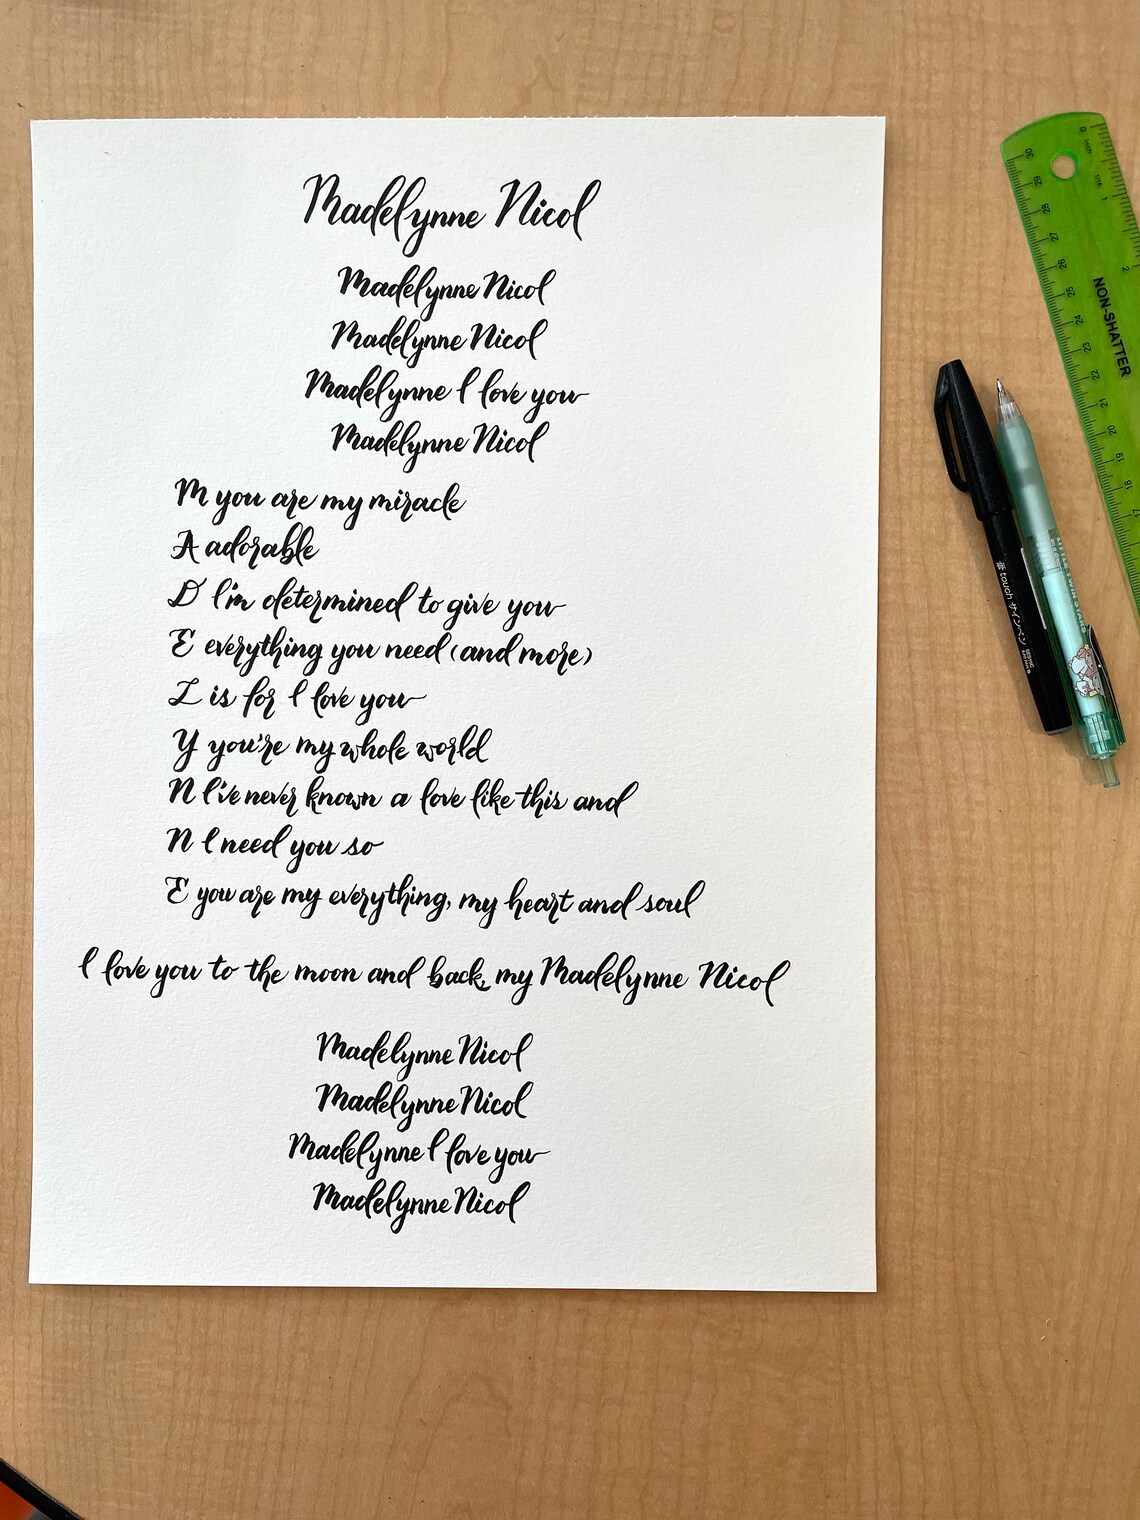 Madelynne Nicol
Madelynne Nicol
Madelynne Nicol
Madelynne I love you
Madelynne Nicol
M you are my miracle
A adorable
D I'm determined to give you
E everything you need (and more)
L is for I love you
Y you're my whole world
N I've never known a love like this and
N I need you so
E you are my everything, my heart and soul
I love you to the moon and back, my Madelynne Nicol
Madelynne Nicol
Madelynne Nicol
Madelynne I love you
Madelynne Nicol
NON-SHATTER
0
1
2
30
29
28
27
26
25
24
23
22
21
20
19
18
17
touch サインペン
LITTLE TWIN STARS